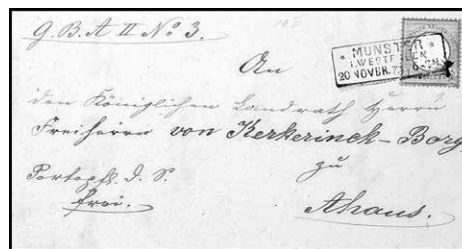 G. B. A II No 3.
An
MÜNSTER
I. WESTFALEN
20 NOVBR. 7
den Königlichen Landrath Herrn
Freiherrn von Kerkerinck-Borg
zu
Portopfl. D. S.
frei.
Ahaus.